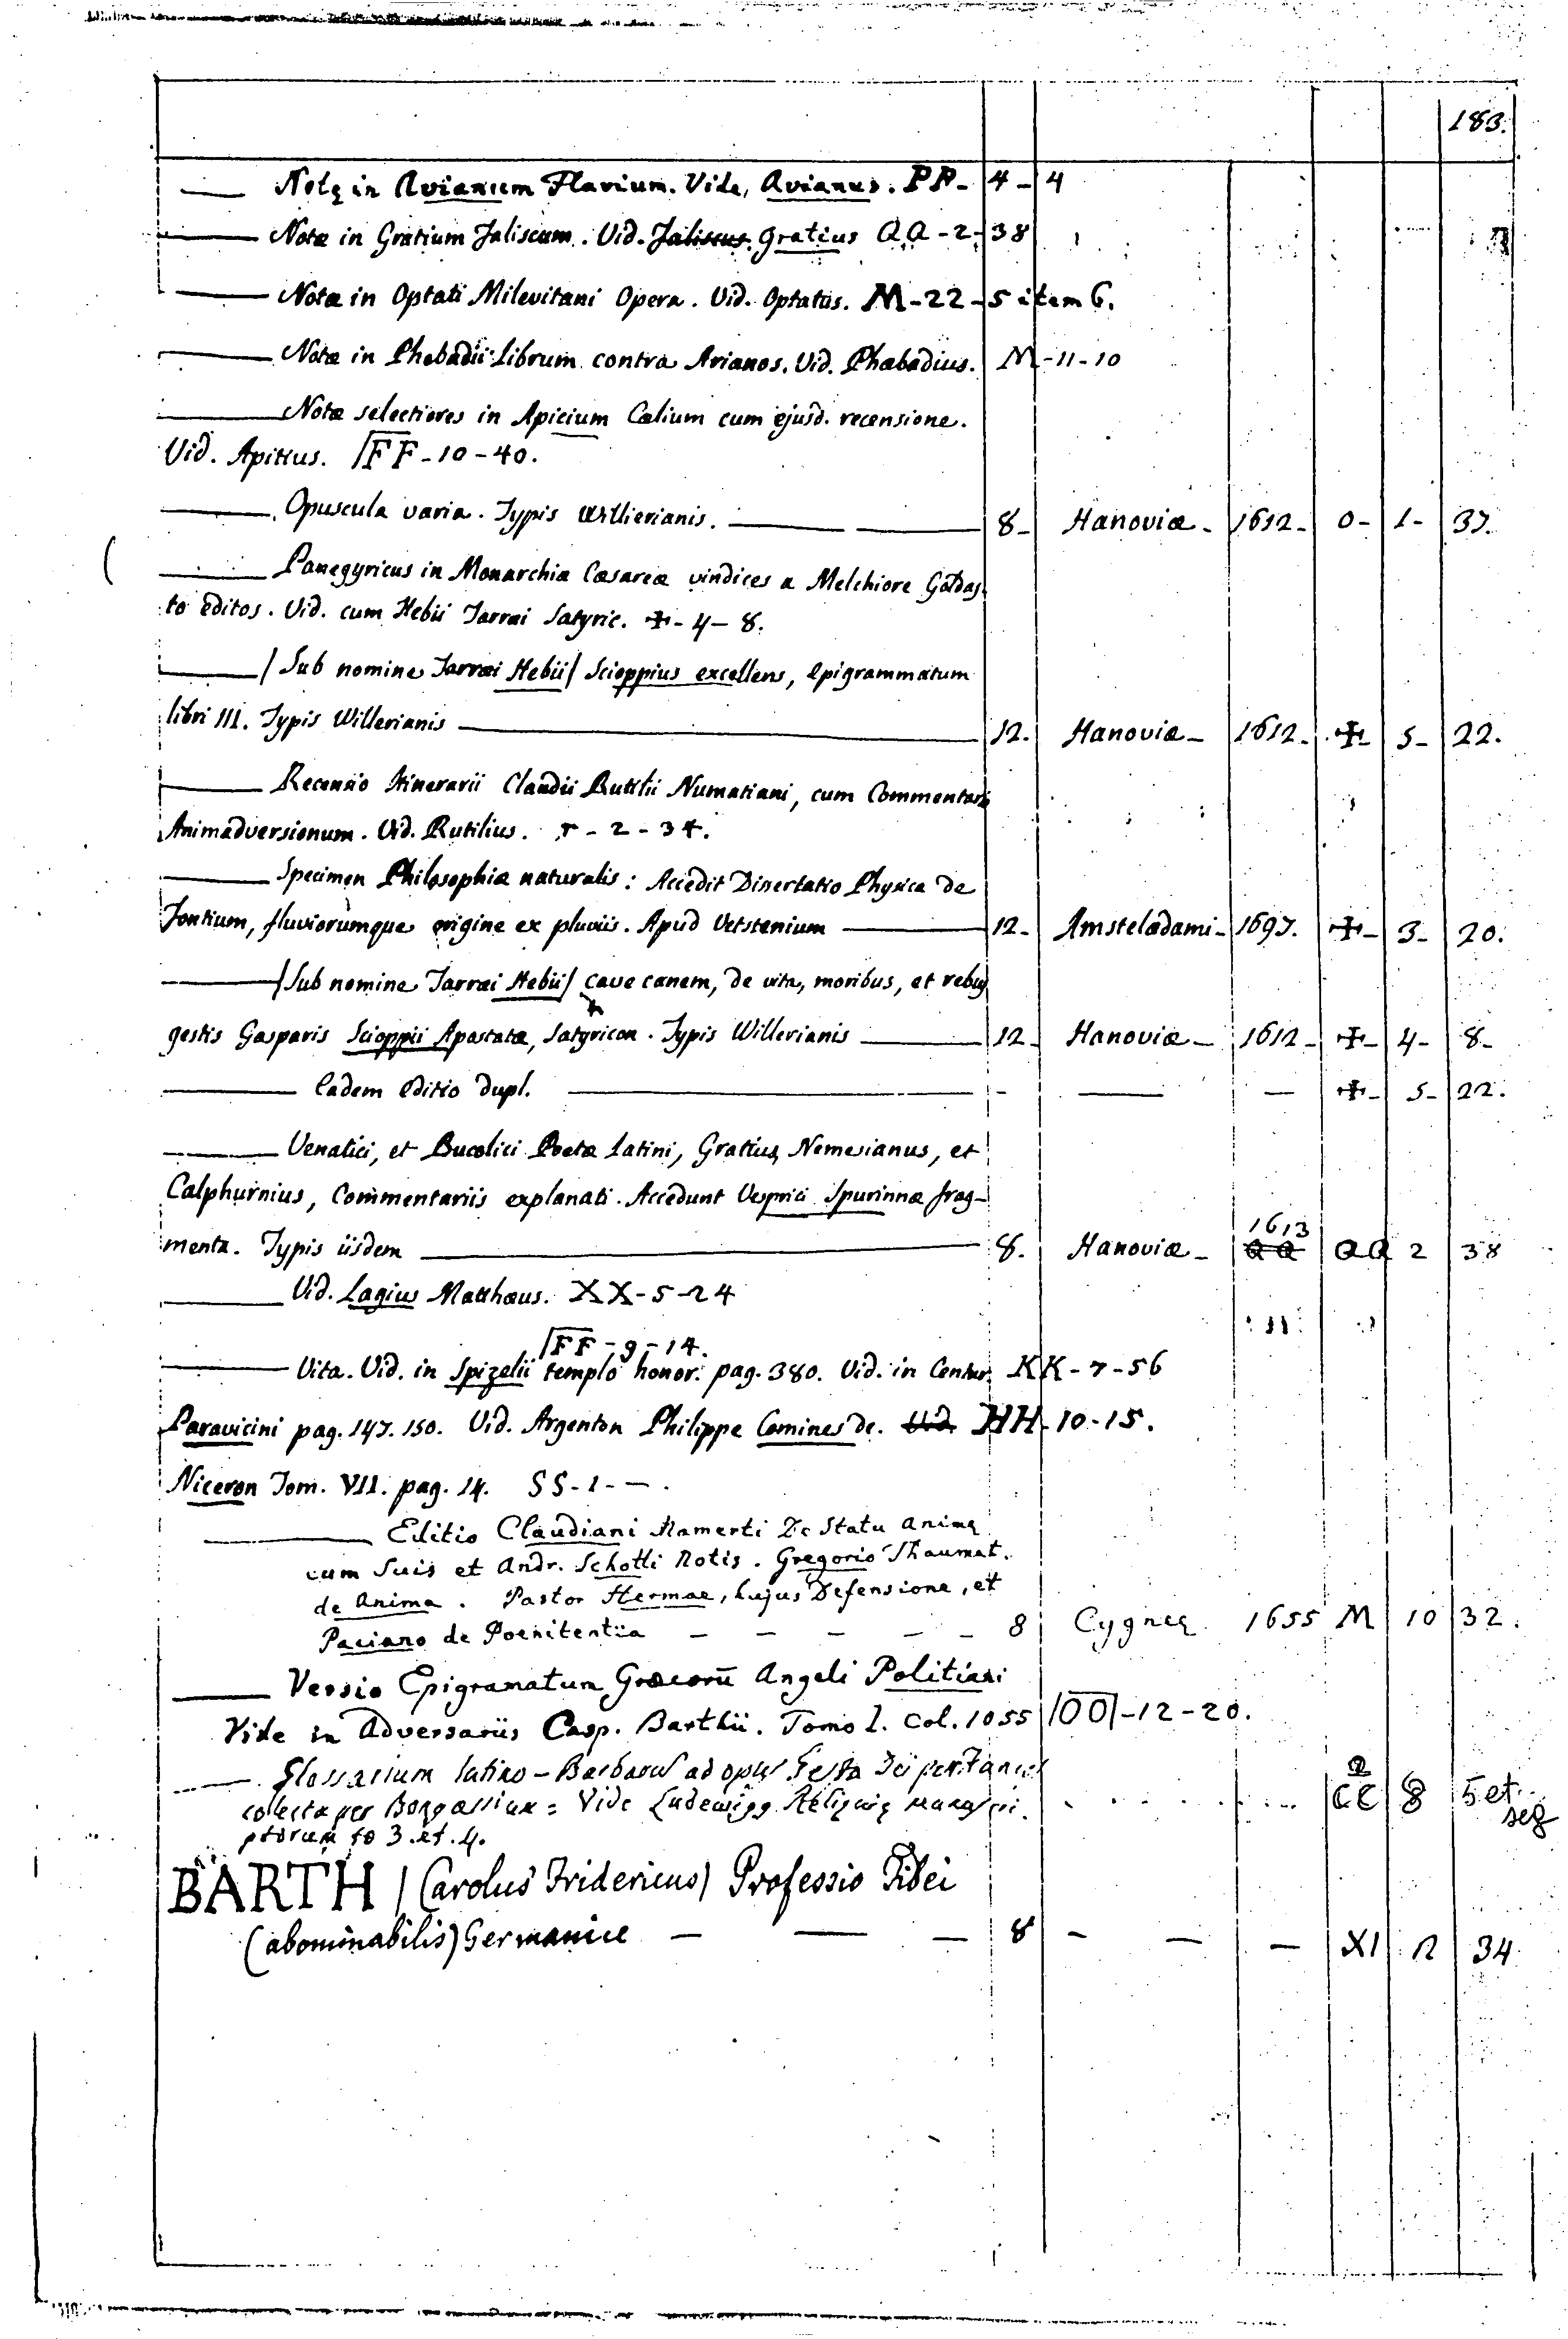 183.
—— Notę in Avianum Flavium. Vide, Avianus. PP- 4 - 4
—— Notæ in Gratium Faliscum. Vid. Faliscus. Gratius QQ-2-38
—— Notæ in Optati Milevitani Opera. Vid. Optatus. M-22-5 item 6.
—— Notæ in Phebadii Librum contra Arianos. Vid. Phæbadius. M-11-10
—— Notæ selectiores in Apicium Cælium cum ejusd. recensione.
Vid. Apitius. FF-10-40.
—— Opuscula varia. Typis Willierianis. —— —— 8- Hanoviæ- 1612- O- 1- 37.
—— Panegyricus in Monarchiæ Cæsareæ vindices a Melchiore Goldas-
to editos. Vid. cum Hebii Tarræi Satyric. ✠-4-8.
——/ Sub nomine Tarræi Hebii/ Scioppius excellens, Epigrammatum
libri III. Typis Willerianis —— 12. Hanoviæ- 1612- ✠- 5- 22.
—— Recensio Itinerarii Claudii Rutilii Numatiani, cum Commentari
Animadversionum. Vid. Rutilius. r-2-34.
—— Specimen Philosophiæ naturalis: Accedit Dissertatio Physica de
Fontium, fluviorumque origine ex pluviis. Apud Vetstenium —— 12- Amsteladami- 1697. ✠- 3- 20.
——/Sub nomine Tarræi Hebii/ Cave canem, de vita, moribus, et rebus
gestis Gasparis Scioppii Apostatæ, Satyricon. Typis Willerianis —— 12- Hanoviæ- 1612- ✠- 4- 8-
—— Eadem Editio dupl. —— - —— — ✠- 5- 22.
—— Venatici, et Bucolici Poetæ Latini, Gratius, Nemesianus, et
Calphurnius, Commentariis explanati. Accedunt Vespricii Spurinnæ frag-
menta. Typis iisdem —— 8. Hanoviæ- 1613 QQ QQ 2 38
—— Vid. Lagius Matthæus. XX-5-24
FF-9-14.
—— Vita. Vid. in Spizelii templo honor. pag. 380. Vid. in Centur. KK-7-56
Paravicini pag. 147. 150. Vid. Argenton Philippe Comines de. Vid. HH-10-15.
Niceron Tom. VII. pag. 14. SS-1-—.
—— Editio Claudiani Mamerti De Statu Animę
cum Suis et Andr. Schotti Notis. Gregorio Thaumat.
de Anima. Pastor Hermae, hujus Defensione, et
Paciano de Poenitentia — — — — — 8 Cygneę 1655 M 10 32.
—— Versio Epigramatum Græcorū Angeli Politiani
Vide in Adversariis Casp. Barthii. Tomo I. Col. 1055 |OO|-12-20.
—— Glossarium latino-Barbarū ad opus Gesta Dei per Francos
colecta per Bongassium = Vide Ludewigg Reliquię manuscri
ptorum to 3. et. 4. CC 8 5 et seq
BARTH / (Carolus Fridericus) Professio Fidei
(abominabilis) Germanice — — — 8 - — — XI 12 34